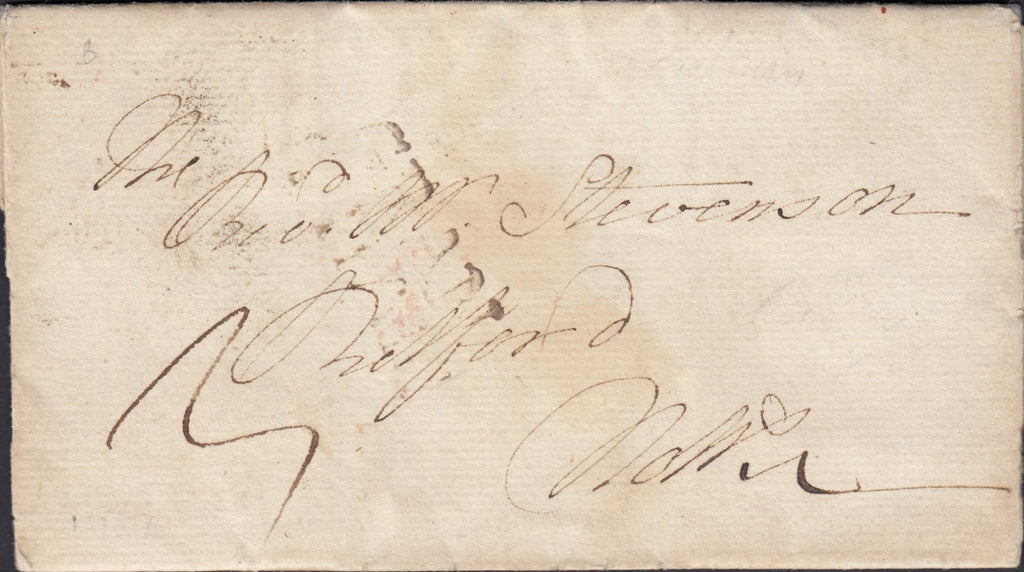 The
Revd. Mr. Stevenson
Rettford
Notts